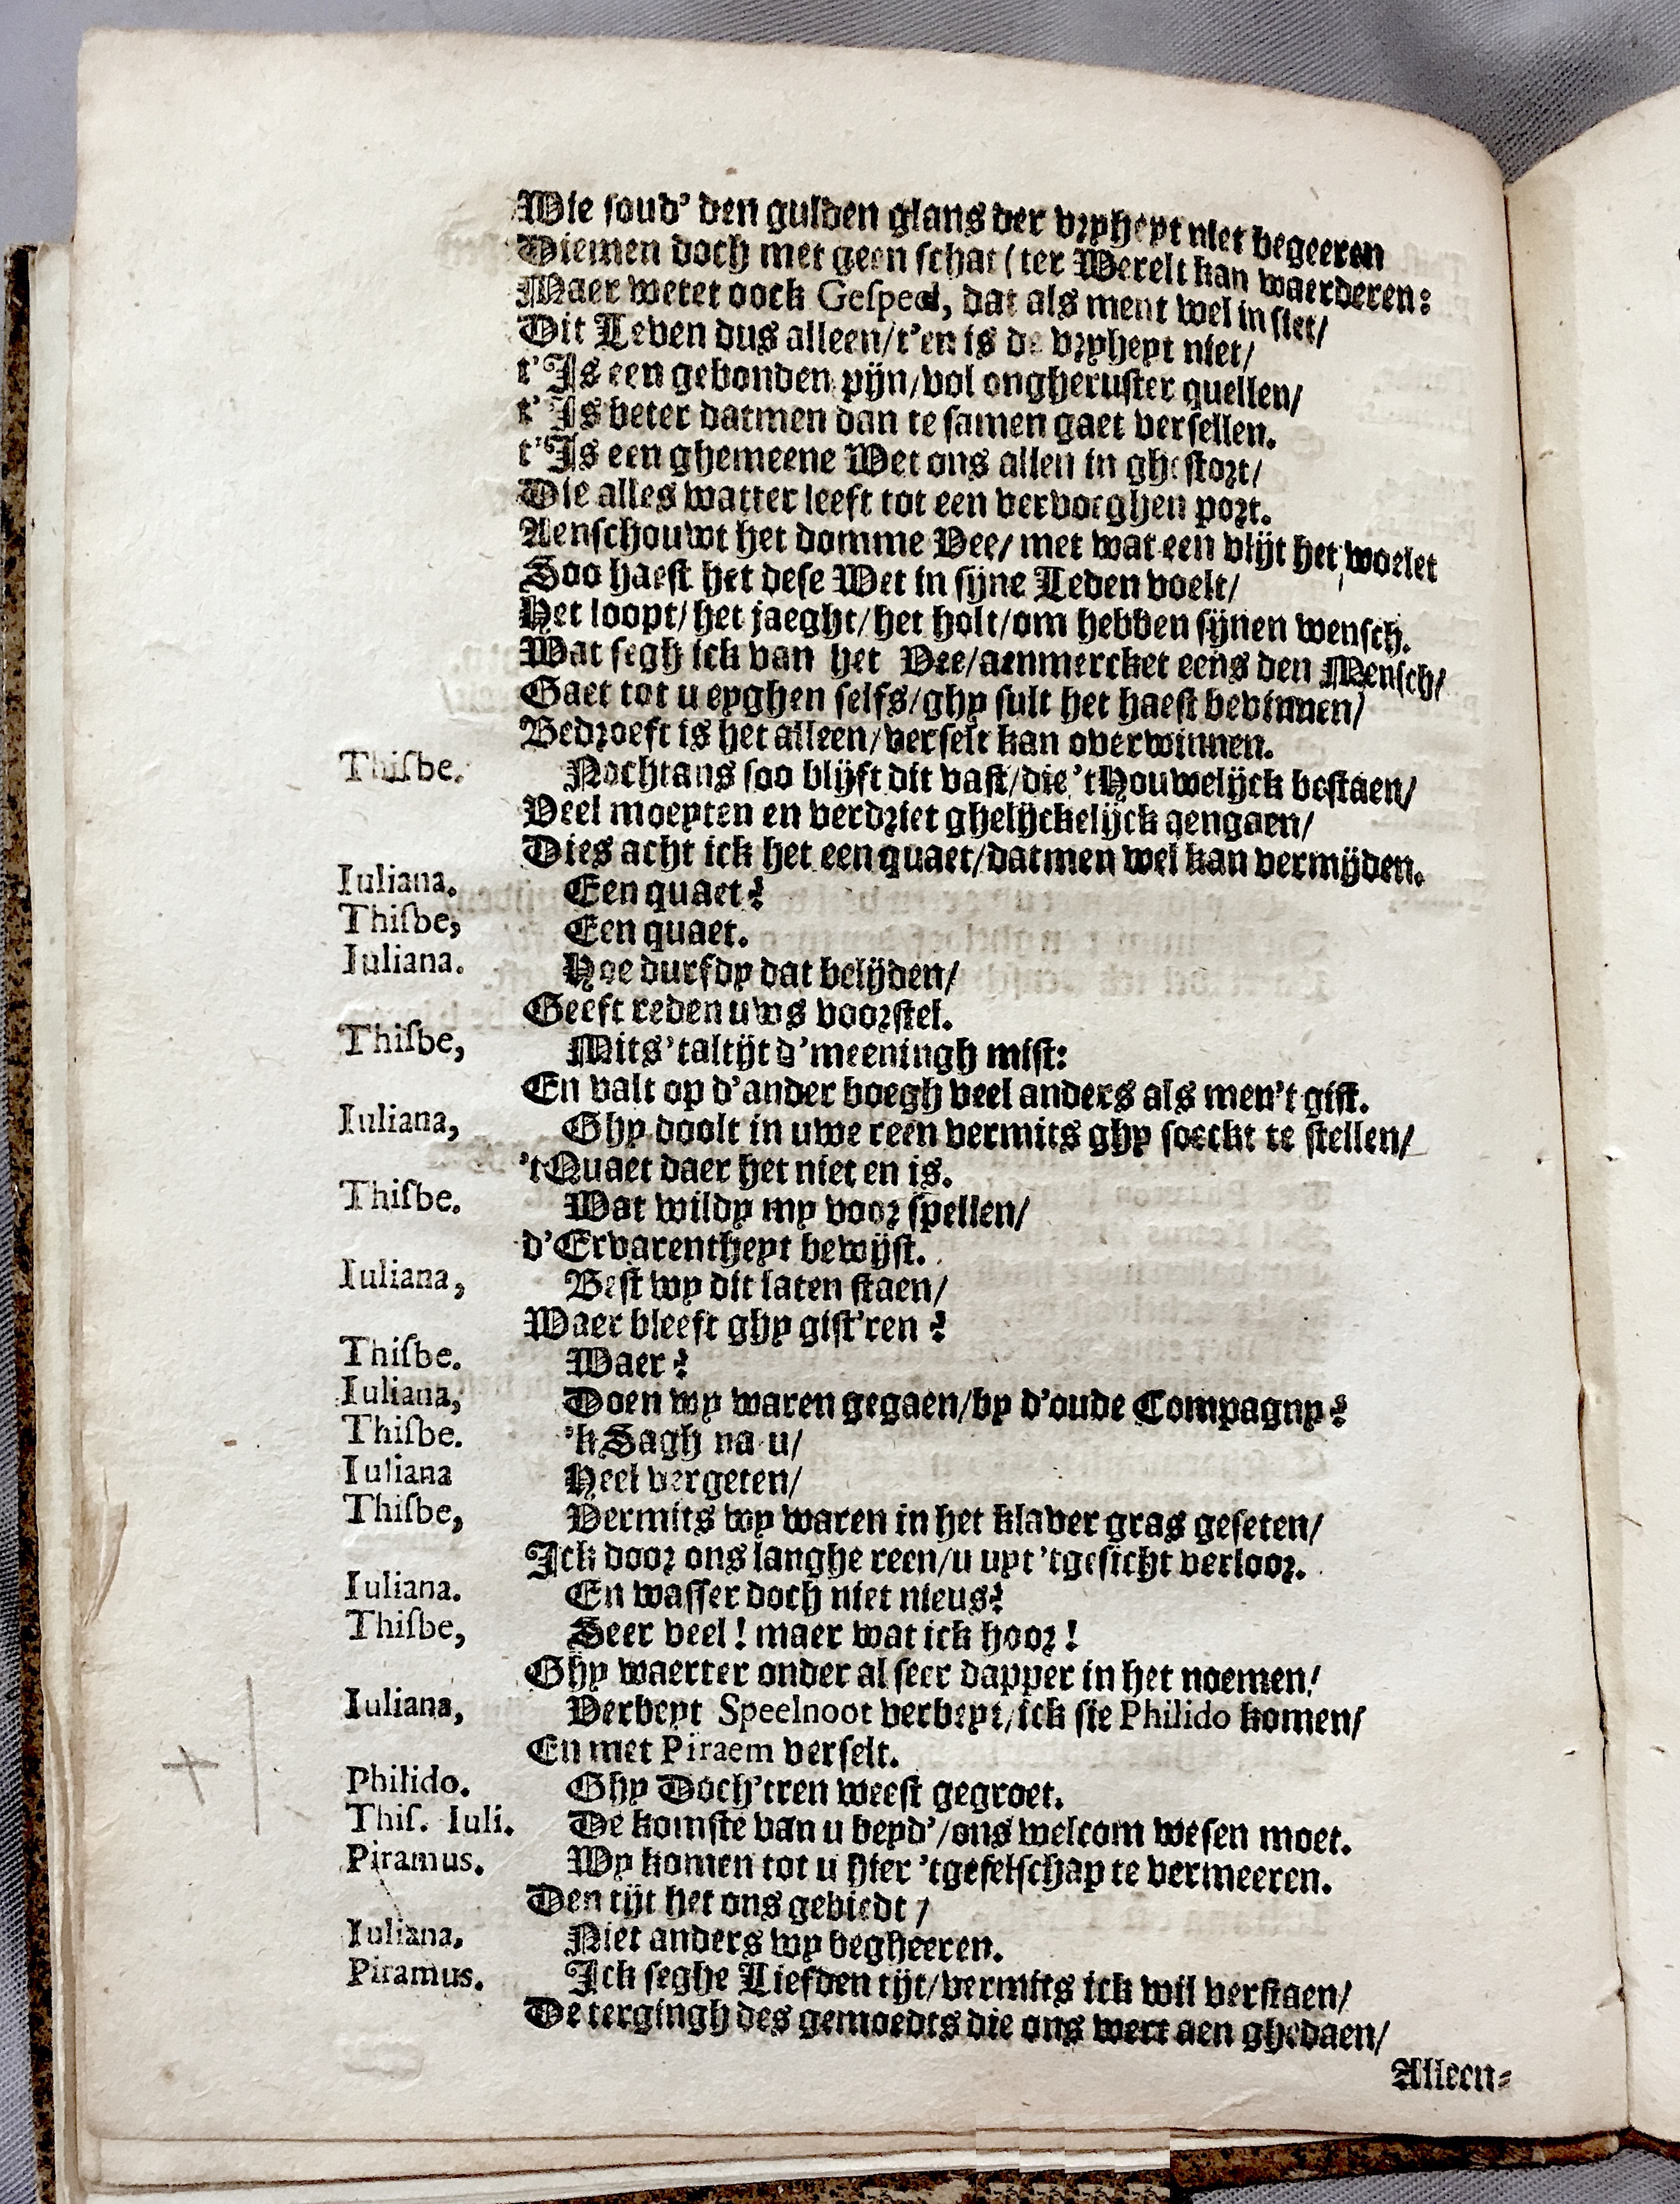 Wie soud' den gulden glans der vryheyt niet begeeren
Diemen doch met geen schat (ter Werelt kan waerderen:
Maer wetet oock Gespeel, dat als ment wel in siet/
Dit Leven dus alleen/t'en is de vryheyt niet/
t'Is een gebonden pijn/vol ongheruster quellen/
t'Is beter datmen dan te samen gaet versellen.
t'Is een ghemeene Wet ons allen in ghestort/
Die alles watter leeft tot een vervoeghen port.
Aenschouwt het domme Vee/ met wat een vlijt het woelet
Soo haest het dese Wet in sijne Leden voelt/
Het loopt/het jaeght/het holt/om hebben sijnen wensch.
Wat segh ick van het Vee/aenmercket eens den Mensch/
Gaet tot u eyghen selfs/ghy sult het haest bevinnen/
Bedroeft is het alleen/verselt kan overwinnen.
Thisbe. Nochtans soo blijft dit vast/die 'tHouwelijck bestaen/
Veel moeyten en verdriet ghelijckelijck aengaen/
Dies acht ick het een quaet/datmen wel kan vermijden.
Iuliana. Een quaet?
Thisbe, Een quaet.
Iuliana. Hoe durfdy dat belijden/
Geeft reden uws voorstel.
Thisbe, Mits 'taltijt d'meeningh mist:
En valt op d'ander boegh veel anders als men't gist.
Iuliana, Ghy doolt in uwe reen vermits ghy soeckt te stellen/
'tQuaet daer het niet en is.
Thisbe. Wat wildy my voor spellen/
d'Ervarentheyt bewijst.
Iuliana, Best wy dit laten staen/
Waer bleeft ghy gist'ren?
Thisbe. Waer?
Iuliana, Doen wy waren gegaen/by d'oude Compagny?
Thisbe. 'k Sagh na u/
Iuliana Heel vergeten/
Thisbe, Vermits wy waren in het klaver gras geseten/
Ick door ons langhe reen/u uyt 'tgesicht verloor.
Iuliana. En wasser doch niet nieus?
Thisbe, Seer veel! maer wat ick hoor!
Ghy waerter onder al seer dapper in het noemen/
Iuliana, Verbeyt Speelnoot verbeyt/ick sie Philido komen/
En met Piraem verselt.
Philido. Ghy Doch'tren weest gegroet.
This. Iuli. De komste van u beyd'/ons welcom wesen moet.
Piramus. Wy komen tot u hier 'tgeselschap te vermeeren.
Den tijt het ons gebiedt /
Iuliana. Niet anders wy begheeren.
Piramus. Ick seghe Liefden tijt/vermits ick wil verstaen/
De tergingh des gemoedts die ons wert aen ghedaen/
Alleen-